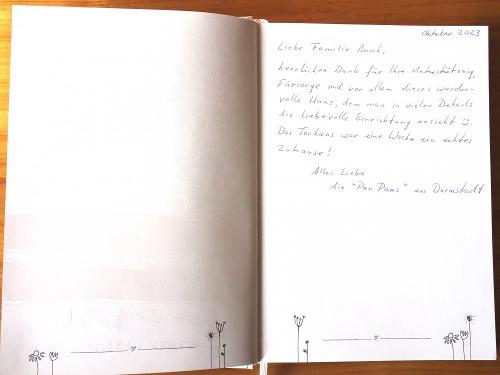 Oktober 2023
Liebe Familie Busch,
herzlichen Dank für Ihre Unterstützung,
Fürsorge und vor allem dieses wunder-
volle Haus, dem man in vielen Details
die liebevolle Einrichtung ansieht ☺.
Das Torhaus war eine Woche ein echtes
Zuhause!
Alles Liebe
die "Pan Paus" aus Darmstadt